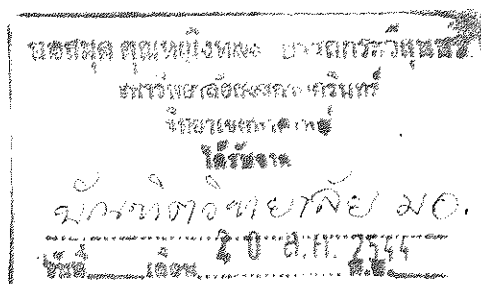 หอสมุด คุณหญิงหลง อรรถกระวีสุนทร
มหาวิทยาลัยสงขลานครินทร์
วิทยาเขตหาดใหญ่
ได้รับจาก
บัณฑิตวิทยาลัย มอ.
วันที่ เดือน 20 ส.ค. 2544 พ.ศ.